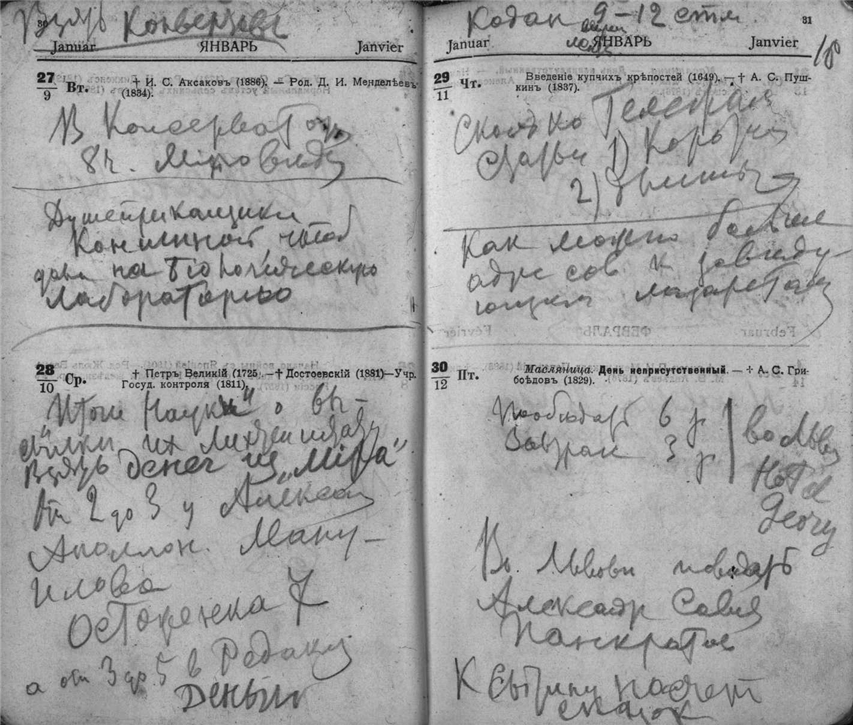 Взять Конверты
30
Januar ЯНВАРЬ Janvier
27
9
Вт.
† И. С. Аксаковъ (1886). — Род. Д. И. Менделѣевъ
(1834).
В Консерватор
8 ч.
Консилиой
два на биологическую
лабораторью
28
10
Ср.
† Петръ Великій (1725). — † Достоевскій (1881) — Учр.
Госуд. контроля (1811).
"Итоги Науки" о вы-
сылки их
Взять денег из "Мiра"
От 2 до 3 у Алексан
Аполлон. Ману-
илова
Остоженка 7
а от 3 до 5 в Редакц
Деньги
Кодак 9-12 стм
31
Januar ЯНВАРЬ Janvier
18
29
11
Чт.
Введеніе купчихъ крѣпостей (1649). — † А. С. Пуш-
кинъ (1837).
Сколько
1)
2)
Как можно больше
адресов к заведу-
ющим лазаретам
30
12
Пт.
Масляница. День неприсутственный. — † А. С. Гри-
боѣдовъ (1829).
Пообедать 6 р
Завтрак 3 р
во Львов
Hotel
Georg
Во Львови повидать
Александр Савич
Панкратов
К Сытину насчет
сказок